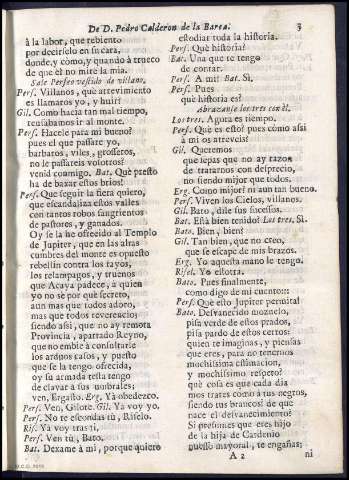 De D. Pedro Calderon de la Barca.
3
à la labor, que rebiento
por decirselo en su cara,
donde, y còmo, y quando à trueco
de que èl no mire la mia.
Sale Perseo vestido de villano.
Pers. Villanos, què atrevimiento
es llamaros yo, y huir?
Gil. Como hacia tal mal tiempo,
temabamos ir al monte.
Pers. Hacele para mi bueno?
pues el que passare yo,
barbaros, viles, grosseros,
no le passareis vosotros?
venid conmigo. Bat. Què presto
ha de baxar estos brios!
Pers. Que seguir la fiera quiero,
que escandaliza estos valles
con tantos robos sangrientos
de pastores, y ganados.
Oy se la he ofrecido al Templo
de Jupiter, que en las altas
cumbres del monte es opuesto
rebellin contra los rayos,
los relampagos, y truenos
que Acaya padece, à quien
yo no se por què secreto,
aun mas que todos adoro,
mas que todos reverencio;
siendo assi, que no ay remota
Provincia, apartado Reyno,
que no embie à consultarle
los arduos casos, y puesto
que se la tengo ofrecida,
oy su armada testa tengo
de clavar à sus umbrales;
ven, Ergasto. Erg. Yà obedezco.
Pers. Ven, Gilote. Gil. Yà voy yo.
Pers. No te escondas tù, Riselo.
Ris. Yà voy tras ti.
Pers. Ven tù, Bato.
Bat. Dexame à mi, porque quiero
estodiar toda la historia.
Pers. Què historia?
Bat. Una que te tengo
de contar.
Pers. A mi? Bat. Sì.
Pers. Pues
què historia es?
Abrazanse los tres con èl.
Los tres. Agora es tiempo.
Pers. Què es esto? pues còmo assi
à mi os atreveis?
Gil. Queremos
que sepas que no ay razon
de tratarnos con desprecio,
no siendo mijor que todos.
Erg. Como mijor? ni aun tan bueno.
Pers. Viven los Cielos, villanos.
Gil. Bato, dile sus sucessos.
Bat. Està bien tenido? Los tres. Sì.
Bato. Bien, bien?
Gil. Tan bien, que no creo,
que se escape de mis brazos.
Erg. Yo aquesta mano le tengo.
Risel. Yo estotra.
Bato. Pues finalmente,
como digo de mi cuento:::
Pers. Què esto Jupiter permita!
Bato. Desvanecido mozuelo,
pisa verde de estos prados,
pisa pardo de estos cerros:
quien te imaginas, y piensas
que eres, para no tenernos
mochissima estimacion,
y mochissimo respeto?
què cosa es que cada dia
mos trates como à tus negros,
siendo tus brancos? de què
nace el desvanecimiento?
Si presumes que eres hijo
de la hija de Cardenio
nuesso mayoral, te engañas;
A 2
ni